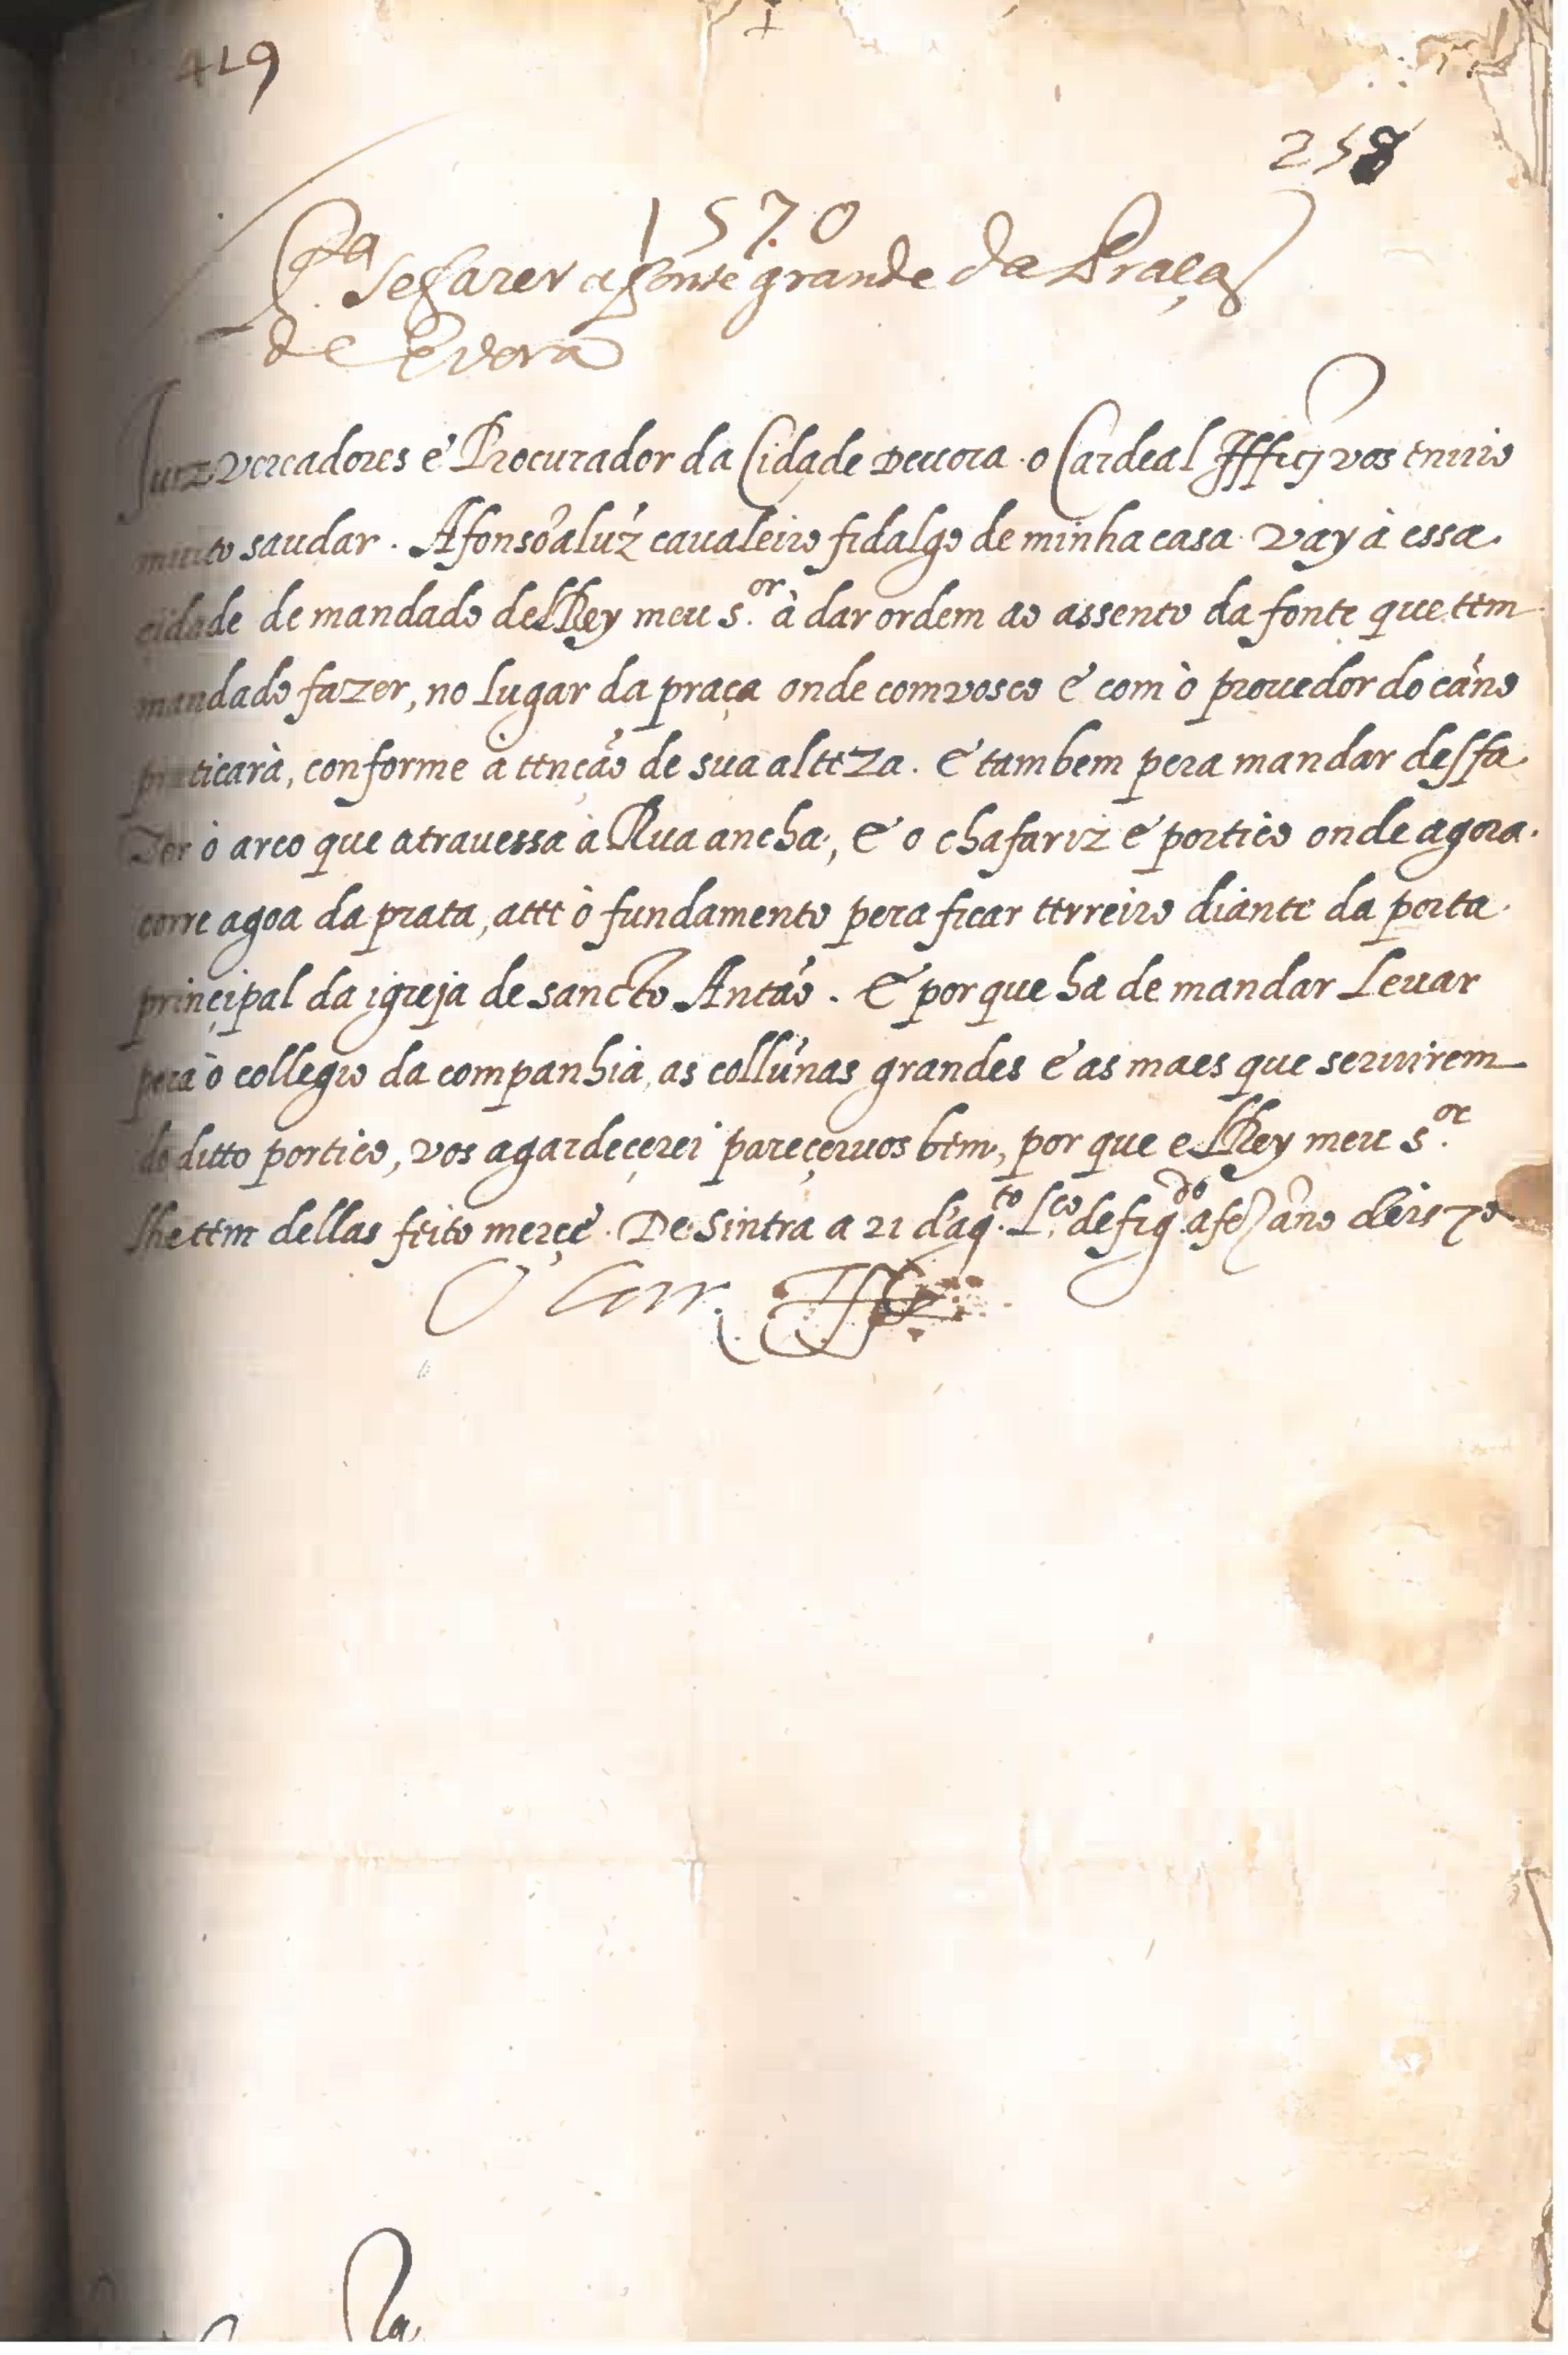 419
258
1570
Pa se fazer a fonte grande da Praça
de Evora
Juiz vereadores e Procurador da Cidade Deuora o Cardeal Iffte vos enuio
muito saudar. Afonso aluz caualeiro fidalgo de minha casa vay à essa
cidade de mandado delRey meu s.or à dar ordem ao assento da fonte que tem
mandado fazer, no lugar da praça onde comvosco e com ò prouedor do cano
praticarà, conforme à tenção de sua alteza. E tambem pera mandar desfa
zer ò arco que atrauessa à Rua ancha, E o chafariz e portico onde agora
corre agoa da prata, atte ò fundamento pera ficar terreiro diante da porta
principal da igreja de sancto Antão. E porque ha de mandar Leuar
pera ò collegio da companhia, as collunas grandes e as maes que seruirem
do ditto portico, vos agardeçerei pareçeruos bem, por que elRey meu s.or
lhe tem dellas feito merçe. De Sintra a 21 d'ag.to L.ço de fig.do a fez ano de 1570
O Car